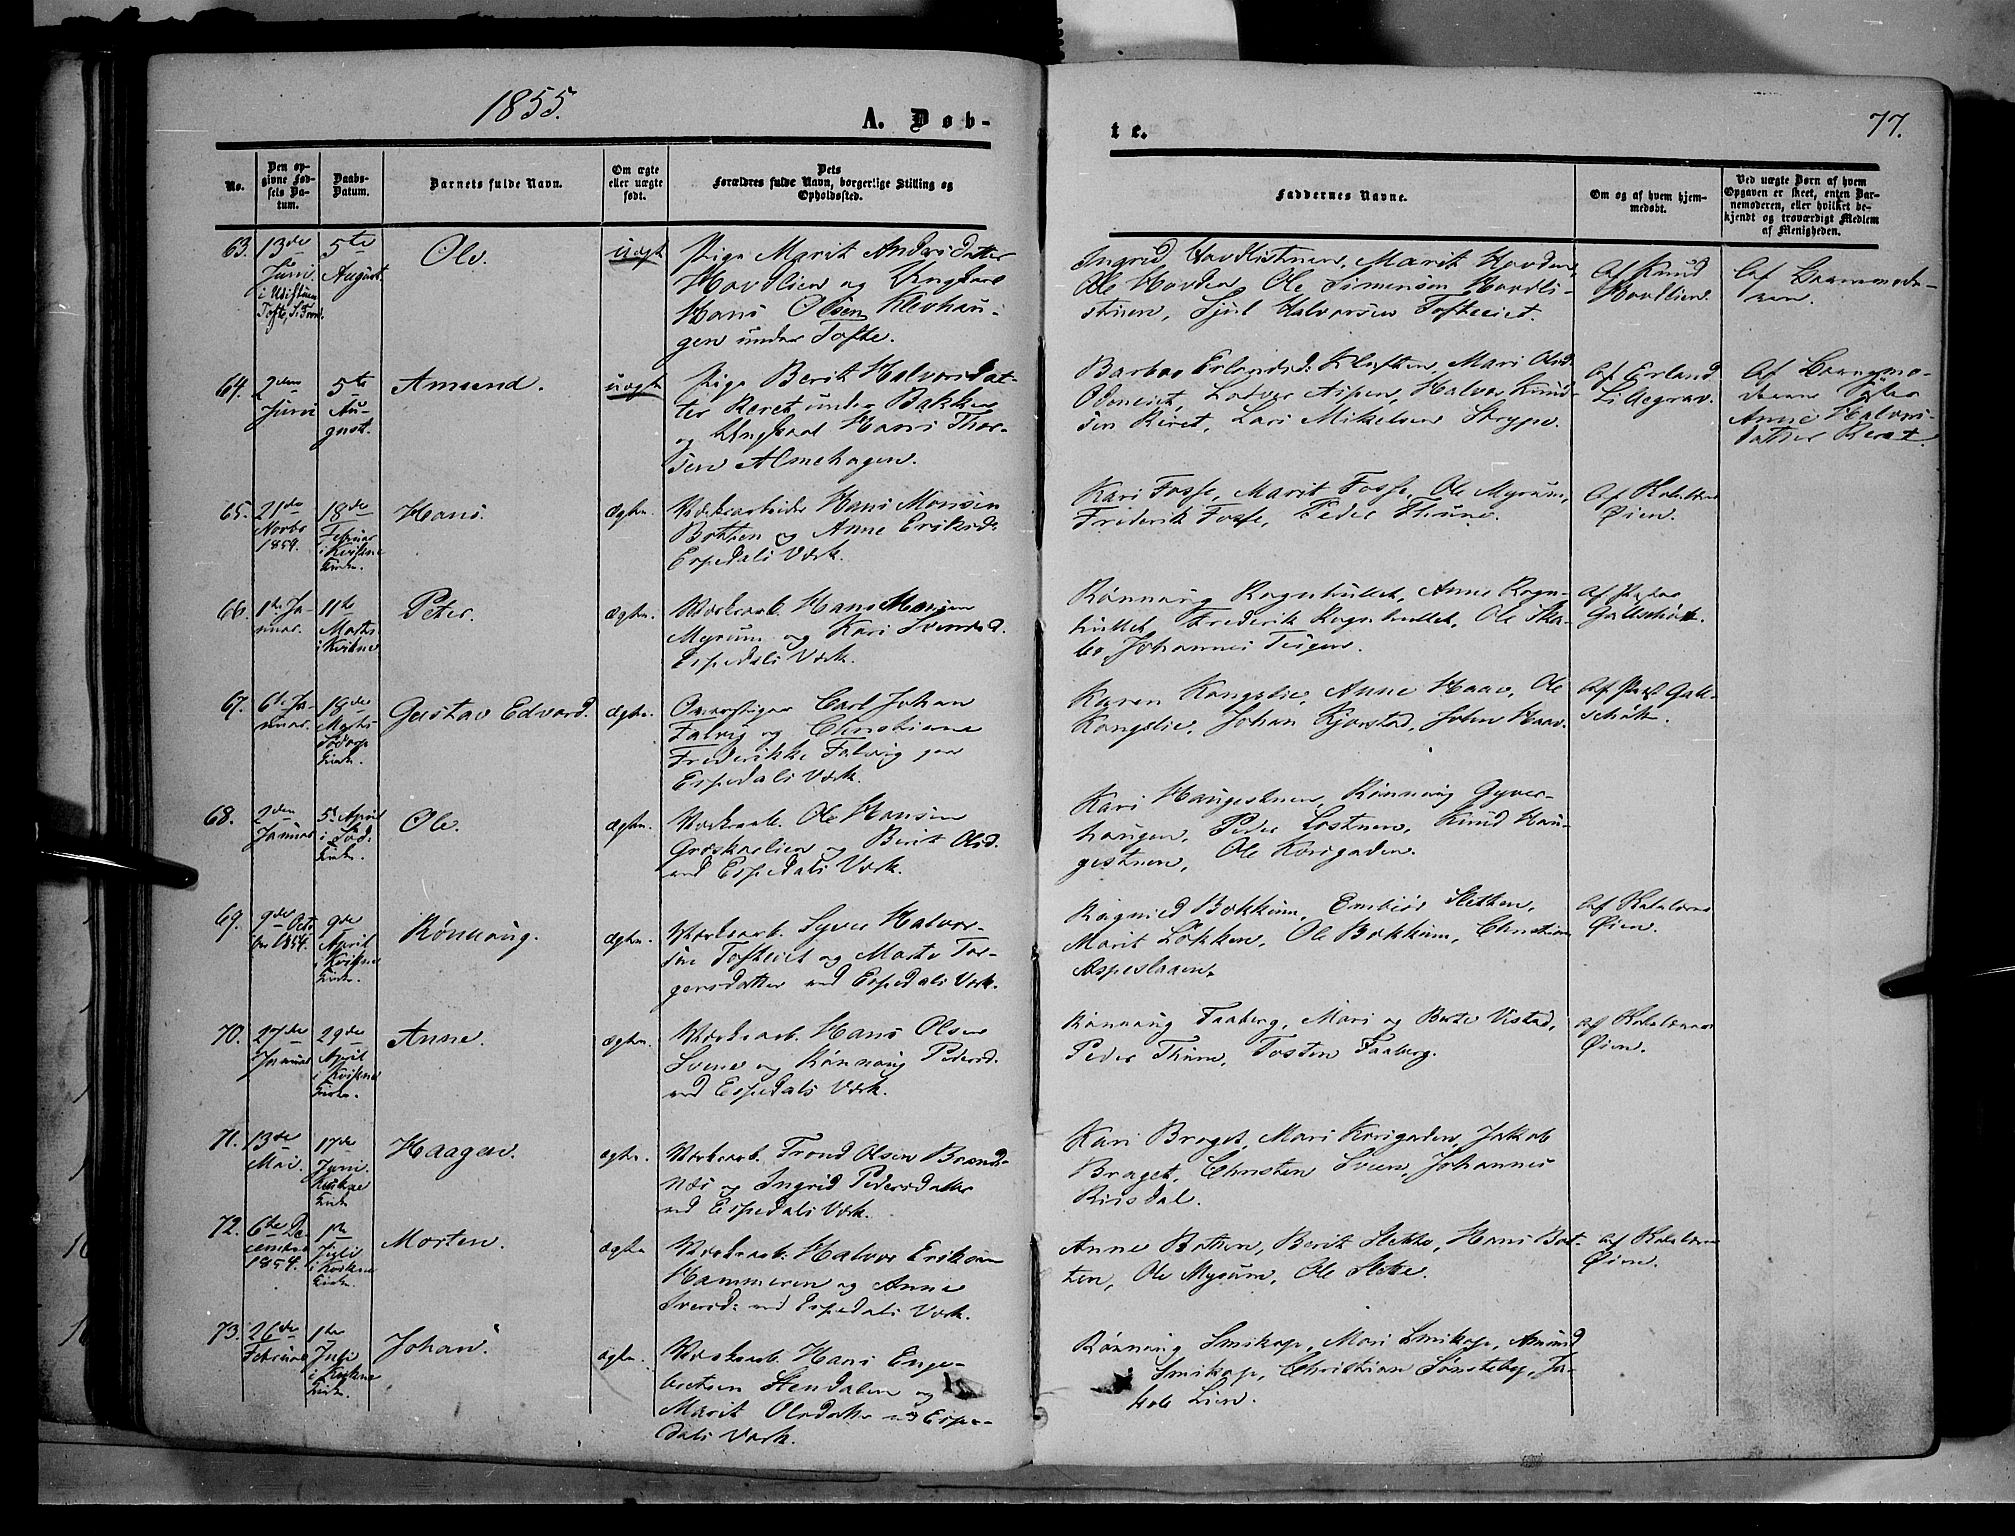 1855.
A. Døb-
te.
77.
No.
Den op-
givne Fød-
sels Da-
tum.
Daabs-
Datum.
Barnets fulde Navn.
Om ægte
eller uægte
født.
Dets
Forældres fulde Navn, borgerlige Stilling og
Opholdssted.
Faddernes Navne.
Om og af hvem hjem-
medøbt.
Ved uægte Børn af hvem
Opgaven er skeet, enten Bar-
nemoderen, eller hvilket be-
kjendt og troværdigt Medlem
af Menigheden.
63.
13de
Juni
5te
August.
Ole.
uægte
Pige Marit Anders Datter
Havdlien og Ungkarl
Hans Olsen Klevhau-
gen under Tofte.
Ingrid Havdlistuen, Marit Hovden,
Ole Hovden, Ole Simensen Havdli-
stuen, Sjul Halvorsen Tofteeiet.
Af Knud
Havdlien.
Af Barnemode-
ren.
64.
2den
Juni
5te
Au-
gust.
Amund.
uægte
Pige Berit Halvorsdat-
ter Reret under Bakken
og Ungkarl Hans Thor-
sen Almehagen.
Barbro Erlandsd: Kluften, Mari Olsd.
Odeneiet, Aspen, Halvor Knud-
sen Reret, Lars Mikelsen Strype.
Af Erland
Lillegrav.
Af Barnemo-
derens
Anne Halvors-
datter Reret.
65.
21de
Novbr
1854.
18de
Februar
i Kvikne
Kirke.
Hans.
ægte.
Værksarbeider Hans Monsen
Botten og Anne Eriksd:
Espedals Værk.
Kari Fosse, Marit Fosse, Ole Myrum,
Friderik Fosse, Peder Thune.
Af
Øien.
66.
1te Ja-
nuar.
11te
Marts
i Kvikne
Peter.
ægte.
Værksarb. Hans Monsen
Myrum og Kari Svendsd.
Espedals Værk.
Rønnaug Rognhullet, Anne Rogn-
hullet, Frederik Rognhullet, Ole Ska-
bo, Johannes
Af
67.
6te Ja-
nuar.
18de
Marts
Sødorp
Kirke.
Gustav Edvard.
ægte.
Overstiger Carl Johan
Falvig og Christiane
Frederikke Falvig paa
Espedals Værk.
Karen Kongslie, Anne Haav, Ole
Kongslie, Johan Kjorstad, John Haav.
Af
68.
2den
Januar
5. April
i Sød.
Kirke.
Ole.
ægte.
Værksarb. Ole Hansen
Græskarlien og Berit Olsd.
ved Espedals Værk.
Kari Haugestuen, Rønnaug Gyver-
haugen, Peder Lostuen, Knud Hau-
gestuen, Ole Korsgaden.
69.
9de Octo
ber 1854.
9de
April
i Kvikne
Kirke.
Rønnaug.
ægte.
Værksarb. Syver Halvor-
sen Tofteeiet og Marte Tor-
gersdatter ved Espedals Værk.
Ragnild Bakkum, Embjør Sletten,
Marit Løkken, Ole Bakkum, Christian
Aspeslaaen.
Af
Øien.
70.
27de
Januar
29de
April
i Kvikne
Kirke.
Anne.
ægte.
Værksarb. Hans Olsen
Sveen og Rønnaug Pedersd.
ved Espedals Værk.
Rønnaug Faaberg, Mari og Berte Vistad,
Peder Thune, Tosten Faaberg.
Af
Øien.
71.
13de
Mai.
17de
Juni
Kvikne
Kirke
Haagen.
ægte.
Værksarb. Trond Olsen Brænd-
næs og Ingrid Pedersdatter
ved Espedals Værk.
Kari Braget, Mari Korsgaden, Jakob
Braget, Christen Sveen, Johannes
Riisdal.
72.
6te De
cember
1854.
1te
Juli
i Kvikne
Kirke.
Morten.
ægte
Værksarb. Halvor Eriksen
Hammeren og Anne
Iversd: ved Espedals Værk.
Anne Botten, Berit Slette, Hans Bot-
ten, Ole Myrum, Ole Slette.
Af
Øien.
73.
26de
Februar
1te
Juli
i Kvikne
Kirke.
Johan.
ægte.
Værksarb. Hans Enge-
bretsen Stendalen og
Marit Olsdatter ved Espe-
dals Værk.
Rønnaug Smikop, Mari Smikop, Amund
Smikop, Christian Sønsteby, Ja-
kob Lien.